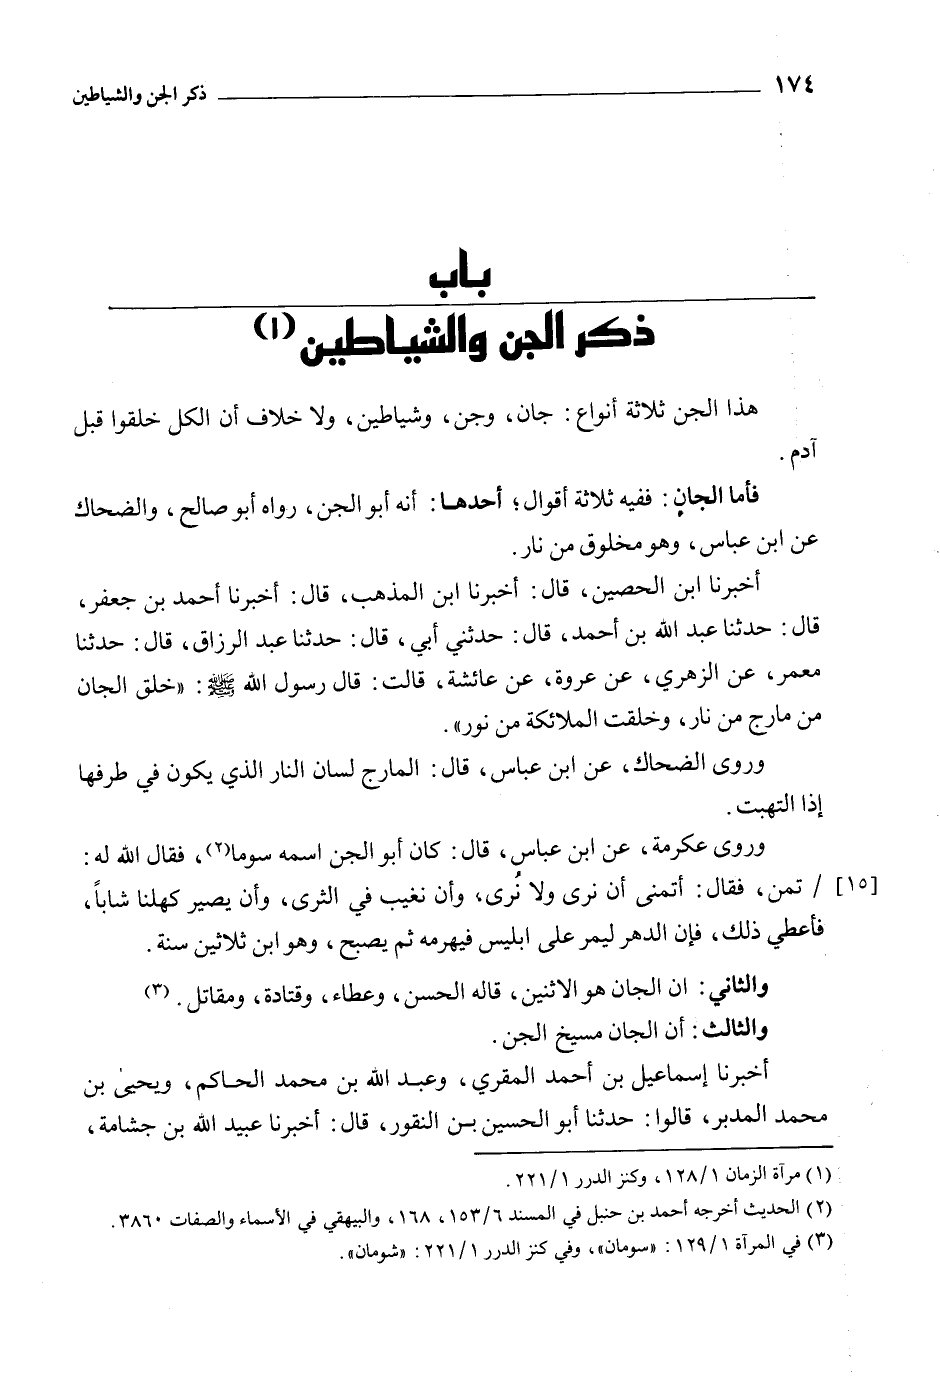 ١٧٤ ذكر الجن والشياطين
باب
ذكر الجن والشياطين (١)
هذا الجن ثلاثة أنواع : جان، وجن، وشياطين، ولا خلاف أن الكل خلقوا قبل
آدم .
فأما الجان : ففيه ثلاثة أقوال؛ أحدها : أنه أبو الجن، رواه أبو صالح، والضحاك
عن ابن عباس، وهو مخلوق من نار.
أخبرنا ابن الحصين، قال: أخبرنا ابن المذهب، قال: أخبرنا أحمد بن جعفر،
قال: حدثنا عبد الله بن أحمد، قال: حدثني أبي، قال: حدثنا عبد الرزاق، قال: حدثنا
معمر، عن الزهري، عن عروة، عن عائشة، قالت: قال رسول الله ﷺ: «خلق الجان
من مارج من نار، وخلقت الملائكة من نور».
وروى الضحاك، عن ابن عباس، قال: المارج لسان النار الذي يكون في طرفها
إذا التهبت.
وروى عكرمة، عن ابن عباس، قال: كان أبو الجن اسمه سوما(٢)، فقال الله له:
[١٥] / تمن، فقال: أتمنى أن نرى ولا نُرى، وأن نغيب في الثرى، وأن يصير كهلنا شاباً،
فأعطي ذلك، فإن الدهر ليمر على ابليس فيهرمه ثم يصبح، وهو ابن ثلاثين سنة.
والثاني: ان الجان هو الاثنين، قاله الحسن، وعطاء، وقتادة، ومقاتل. (٣)
والثالث: أن الجان مسيخ الجن.
أخبرنا إسماعيل بن أحمد المقري، وعبد الله بن محمد الحاكم، ويحيىٰ بن
محمد المدبر، قالوا: حدثنا أبو الحسين بن النقور، قال: أخبرنا عبيد الله بن جشامة،
(١) مرآة الزمان ١/ ١٢٨، وكنز الدرر ١/ ٢٢١.
(٢) الحديث أخرجه أحمد بن حنبل في المسند ٦/ ١٥٣، ١٦٨، والبيهقي في الأسماء والصفات ٣٨٦٠.
(٣) في المرآة ١/ ١٢٩: «سومان»، وفي كنز الدرر ١/ ٢٢١: «شومان».